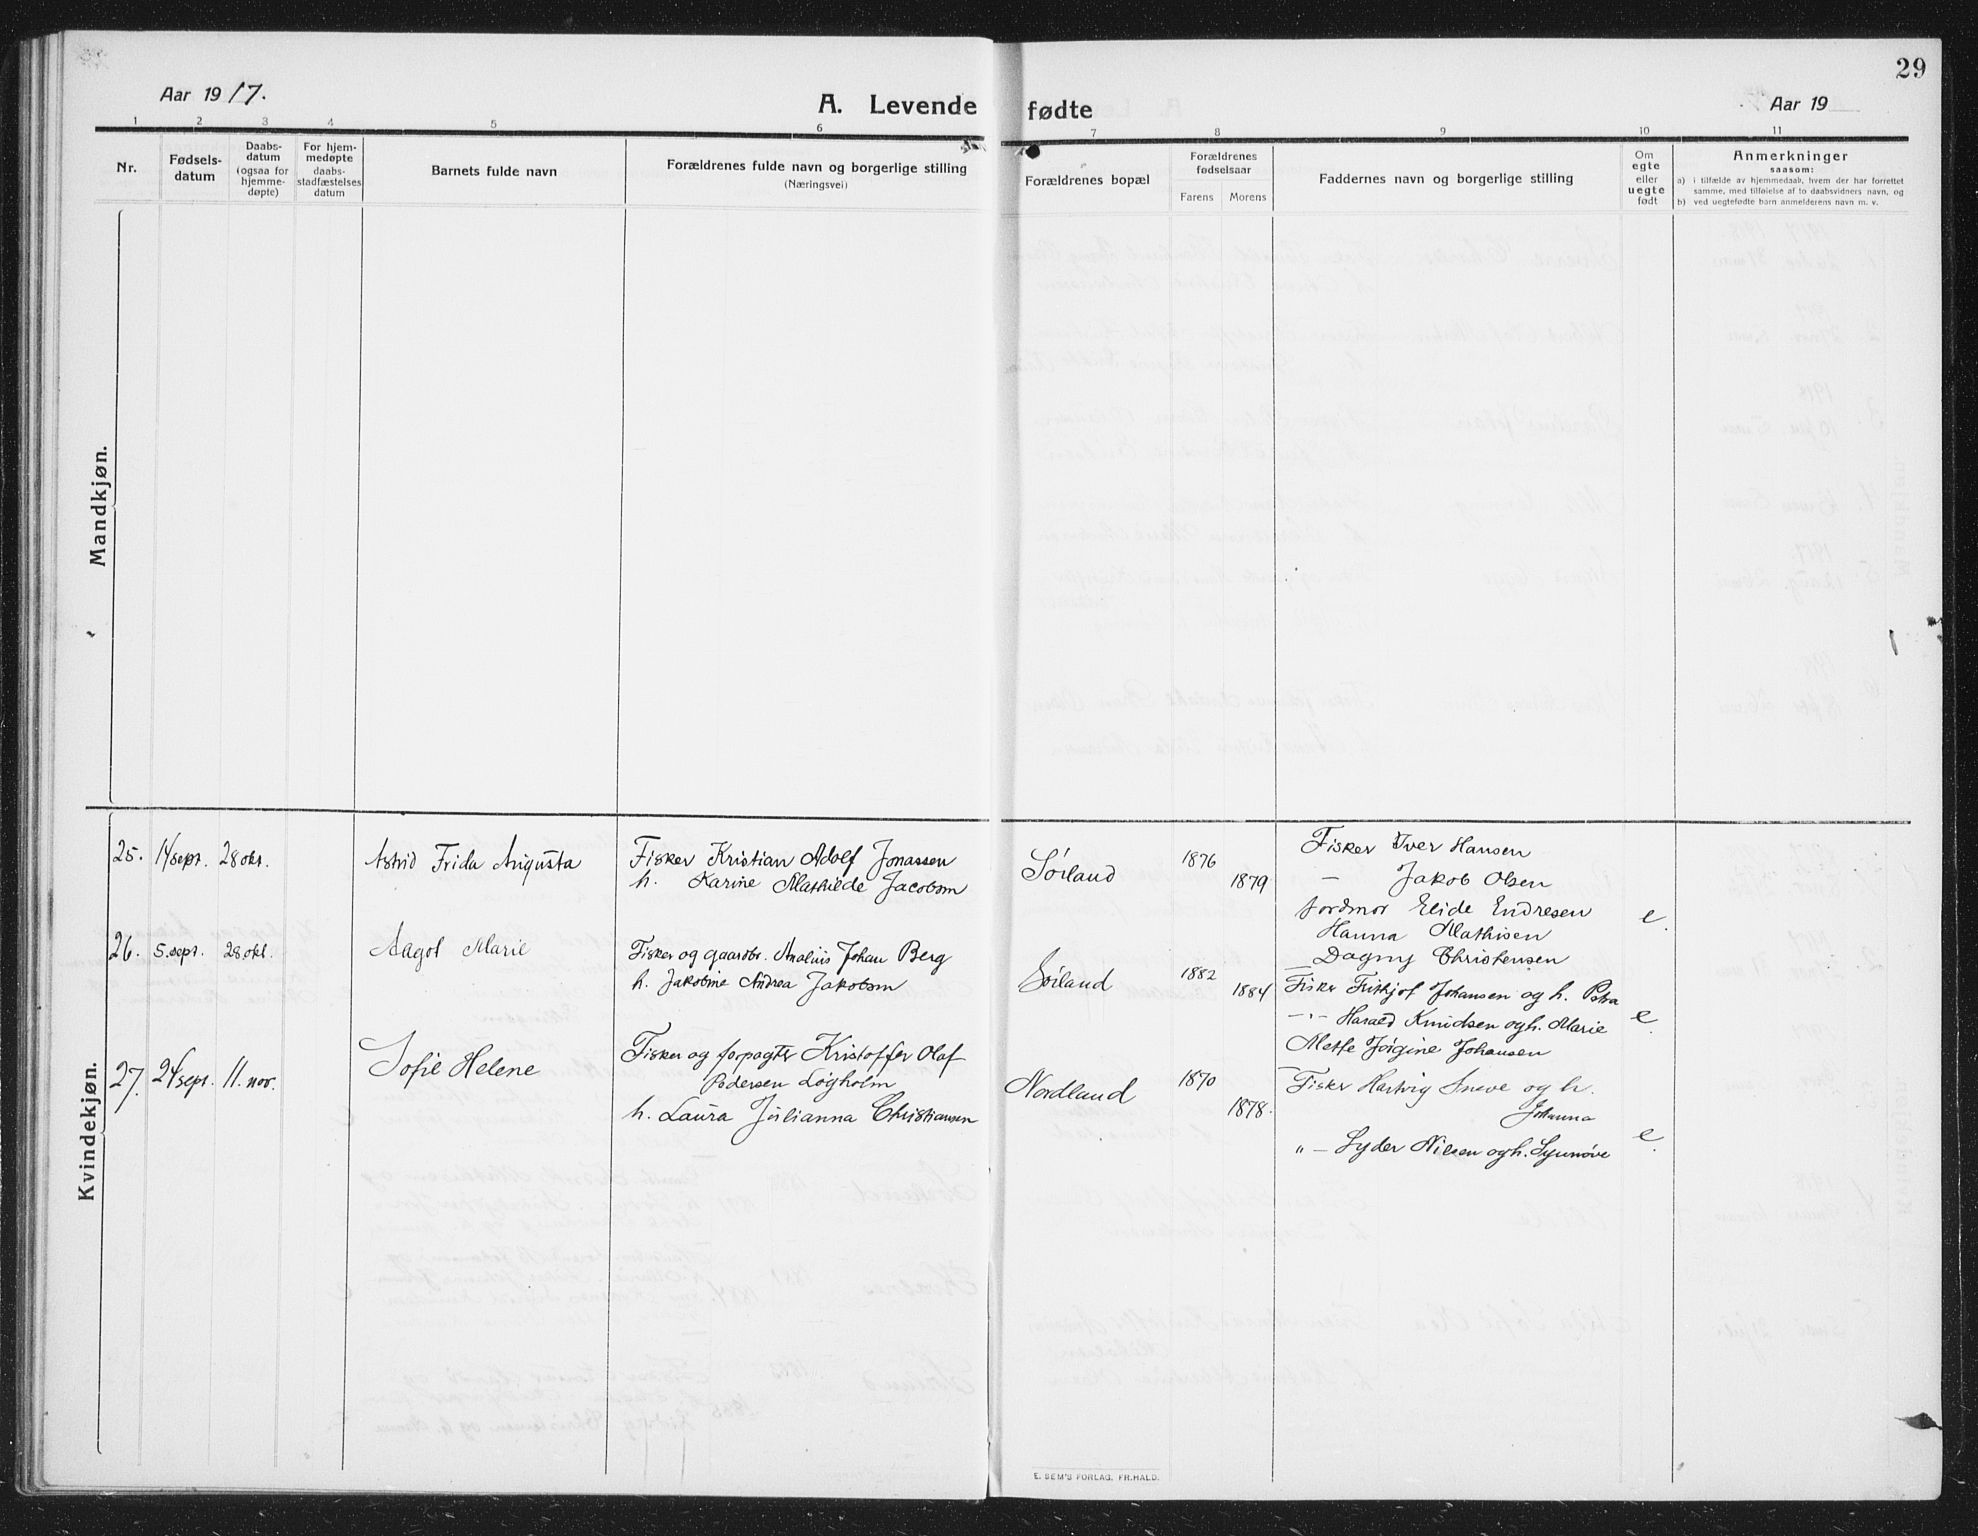 29
Aar 1917.
A. Levende fødte
Aar 19
1 2 3 4 5 6 7 8 9 10 11
Nr.
Fødsels-
datum
Daabs-
datum
(ogsaa for
hjemme-
døpte)
For hjem-
medøpte
daabs-
stadfæstelses
datum
Barnets fulde navn
Forældrenes fulde navn og borgerlige stilling
(Næringsvei)
Forældrenes bopæl
Forældrenes
fødselsaar
Farens Morens
Faddernes navn og borgerlige stilling
Om
egte
eller
uegte
født
Anmerkninger
saasom:
a) i tilfælde av hjemmedaab, hvem der har forrettet
samme, med tilføielse af to daabsvidners navn, og
b) ved uegtefødte barn anmelderens navn m. v.
Mandkjøn.
Kvindekjøn.
25. 14 sept. 28 okt. Astrid Frida Augusta
Fisker Kristian Adolf Jonassen
h. Karine Mathilde Jacobsen
Sörland 1876
1879
Fisker Iver Hansen
— Jakob Olsen
Jordmor Elide Endresen
Hanna Mathisen
Dagny Christensen
e.
26. 5. sept. 28 okt. Aagot Marie
Fisker og gaardbr. Johan Berg
h. Jakobine Andrea Jakobsen
Sörland 1882
1884
Fisker Fritjof Johansen og h. Petra
— " — Harald Knudsen og h. Marie
Mette Jörgine Johansen
e.
27. 24 sept. 11. nov. Sofie Helene
Fisker og forpagter Kristoffer Olaf
Pedersen Lögholm
h. Laura Julianna Christiansen
Nordland 1870
1878.
Fisker Hartvig Sneve og h.
Johanna
" — Lyder Nilsen og h. Synnöve
e.
E. SEM'S FORLAG, FR.HALD.